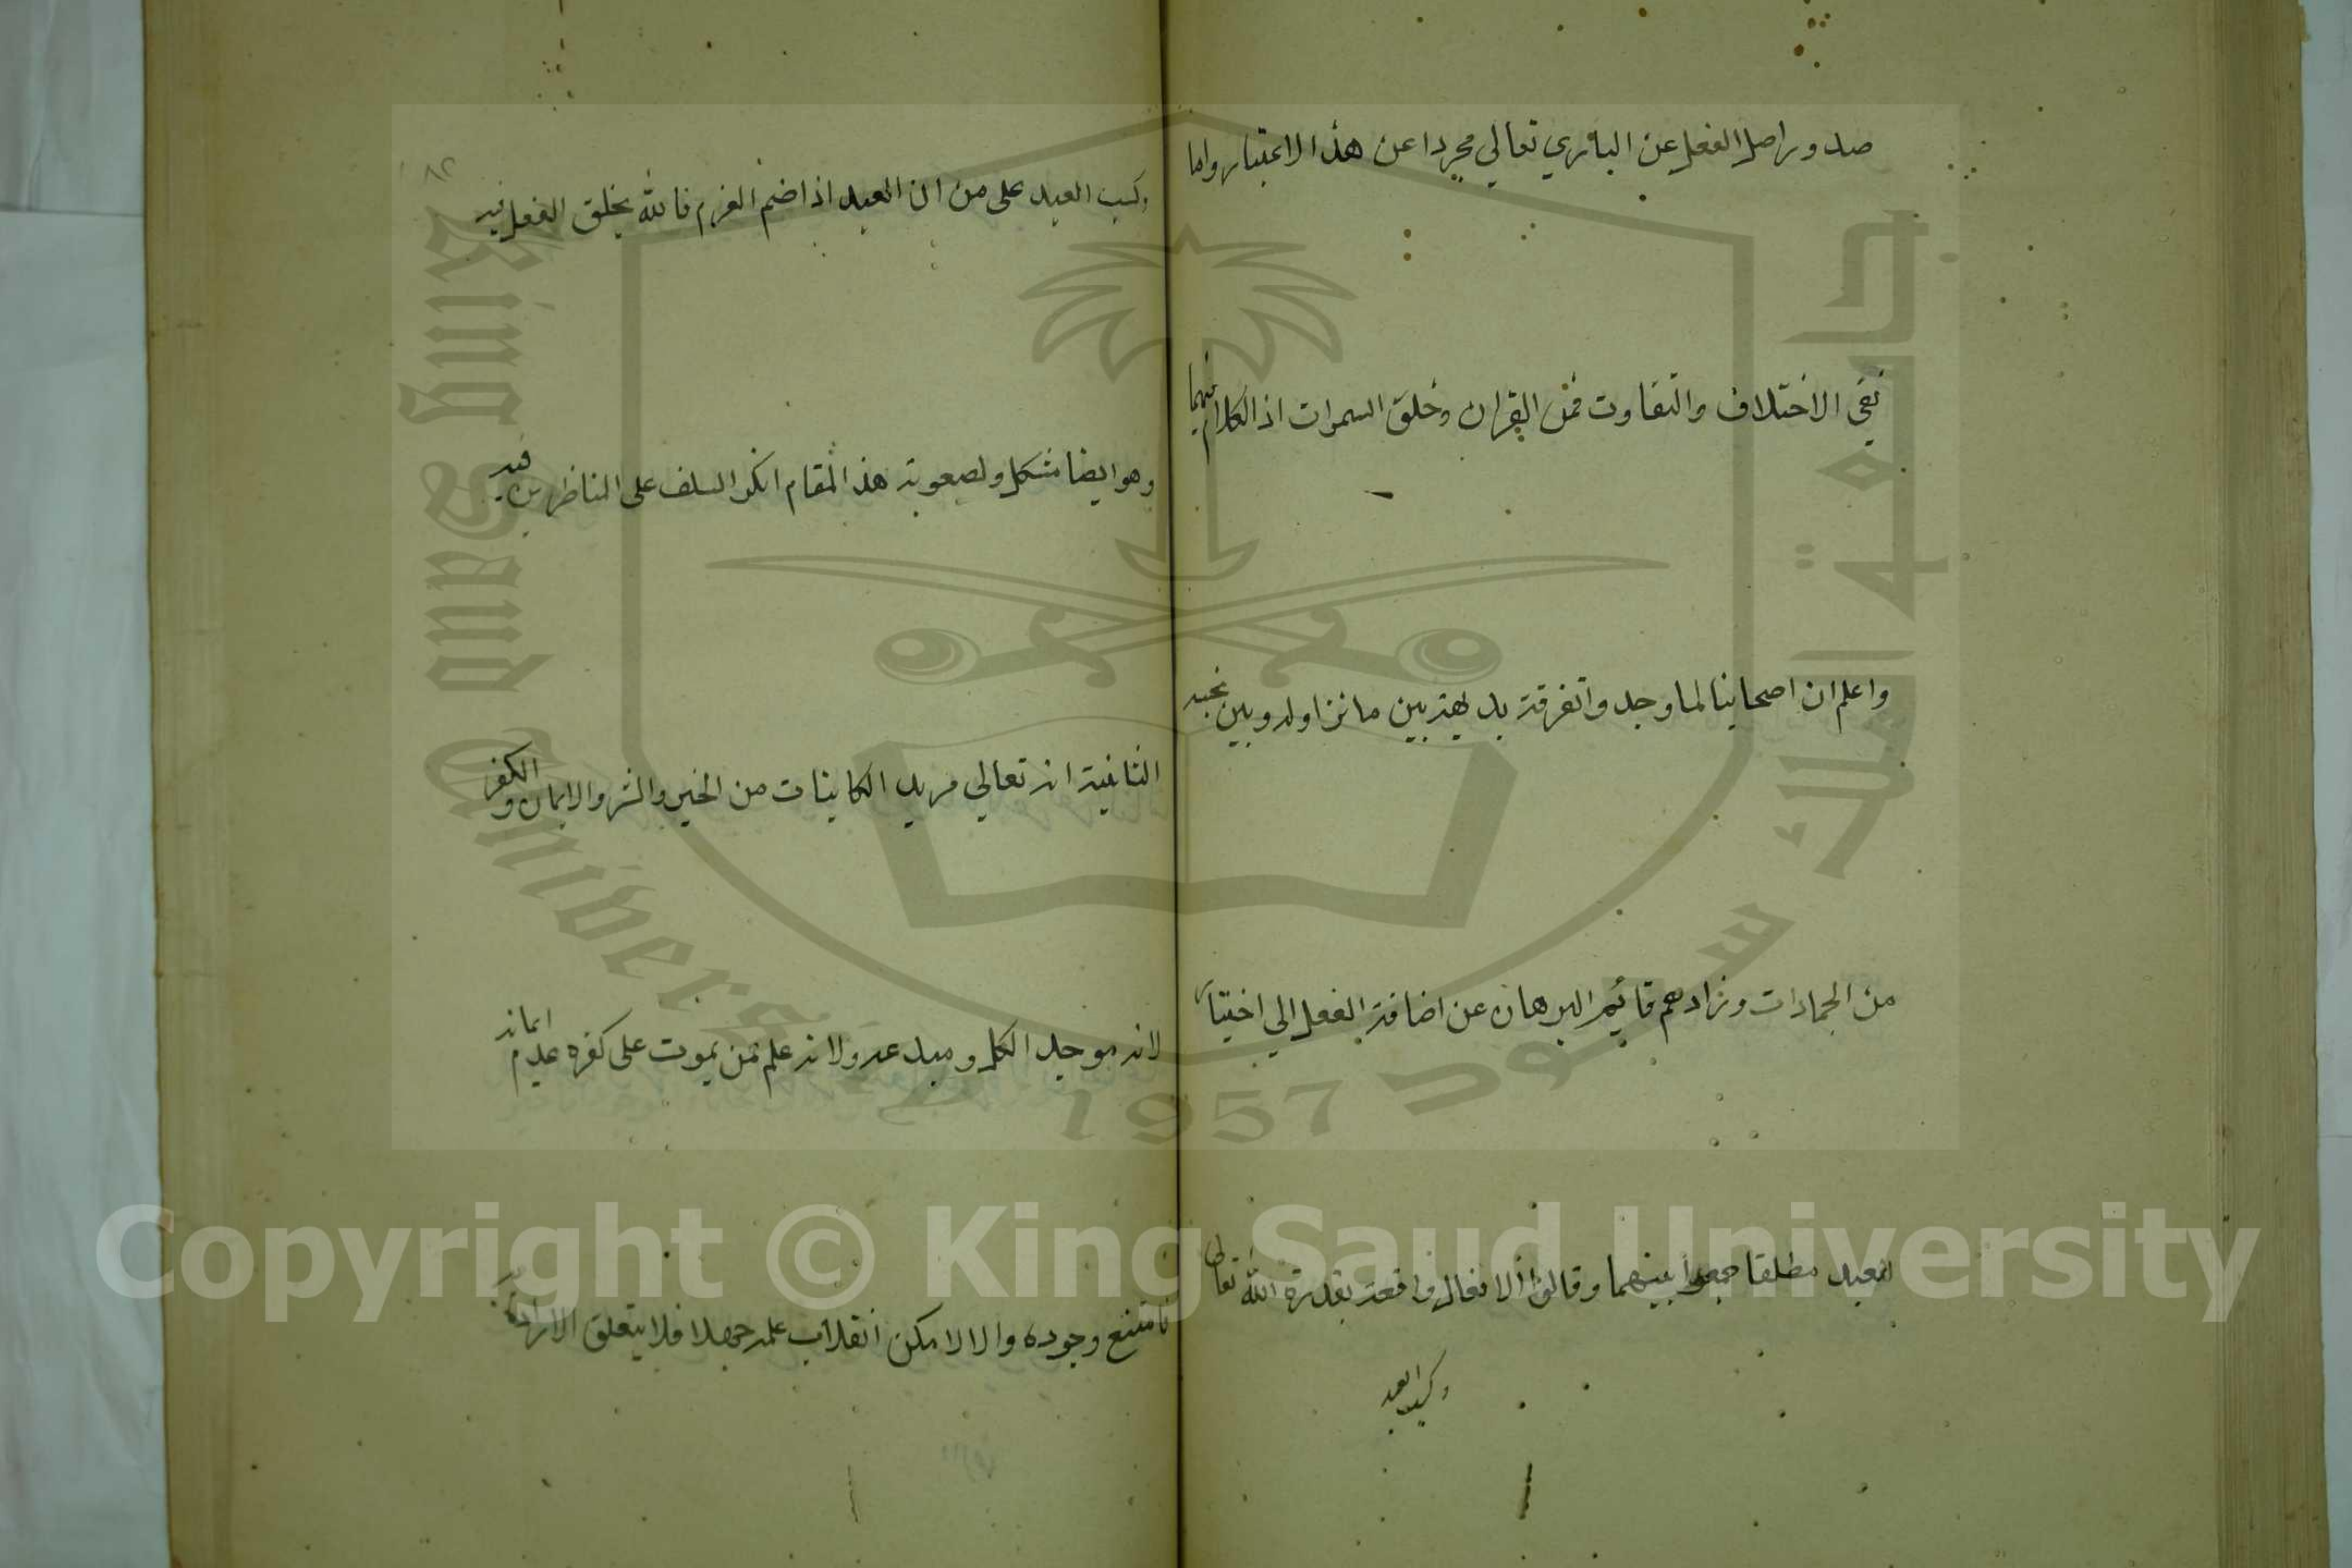 صدور اصل الفعل عن الباري تعالي مجردا عن هذا الاعتبار واما
نفي الاختلاف والتفاوت فمن القران وخلق السموات اذ الكلام فيهما
واعلم ان اصحابنا لما وجدوا تفرقة بديهة بين ما نزاوله وبين نحسه
من الجمادات وزادهم قائم البرهان عن اضافة الفعل الي اختيار
العبد مطلقا جمعوا بينهما وقالوا الافعال واقعة بقدرة الله تعالى
وكسب العبد
٨٢
وكسب العبد على من ان العبد اذا ضم العزم فالله يخلق الفعل فيه
وهو ايضا مشكل ولصعوبة هذا المقام انكر السلف على المناظرين فيه
الثانية انه تعالي مريد الكاينات من الخير والشر والايمان والكفر
لانه موجد الكل ومبدعه ولانه علم ممن يموت على كفره عدم ايمانه
فامتنع وجوده والا لامكن انقلاب علمه جهلا فلا يتعلق الارادة به
King Saud University
جامعة الملك سعود
1957
Copyright © King Saud University